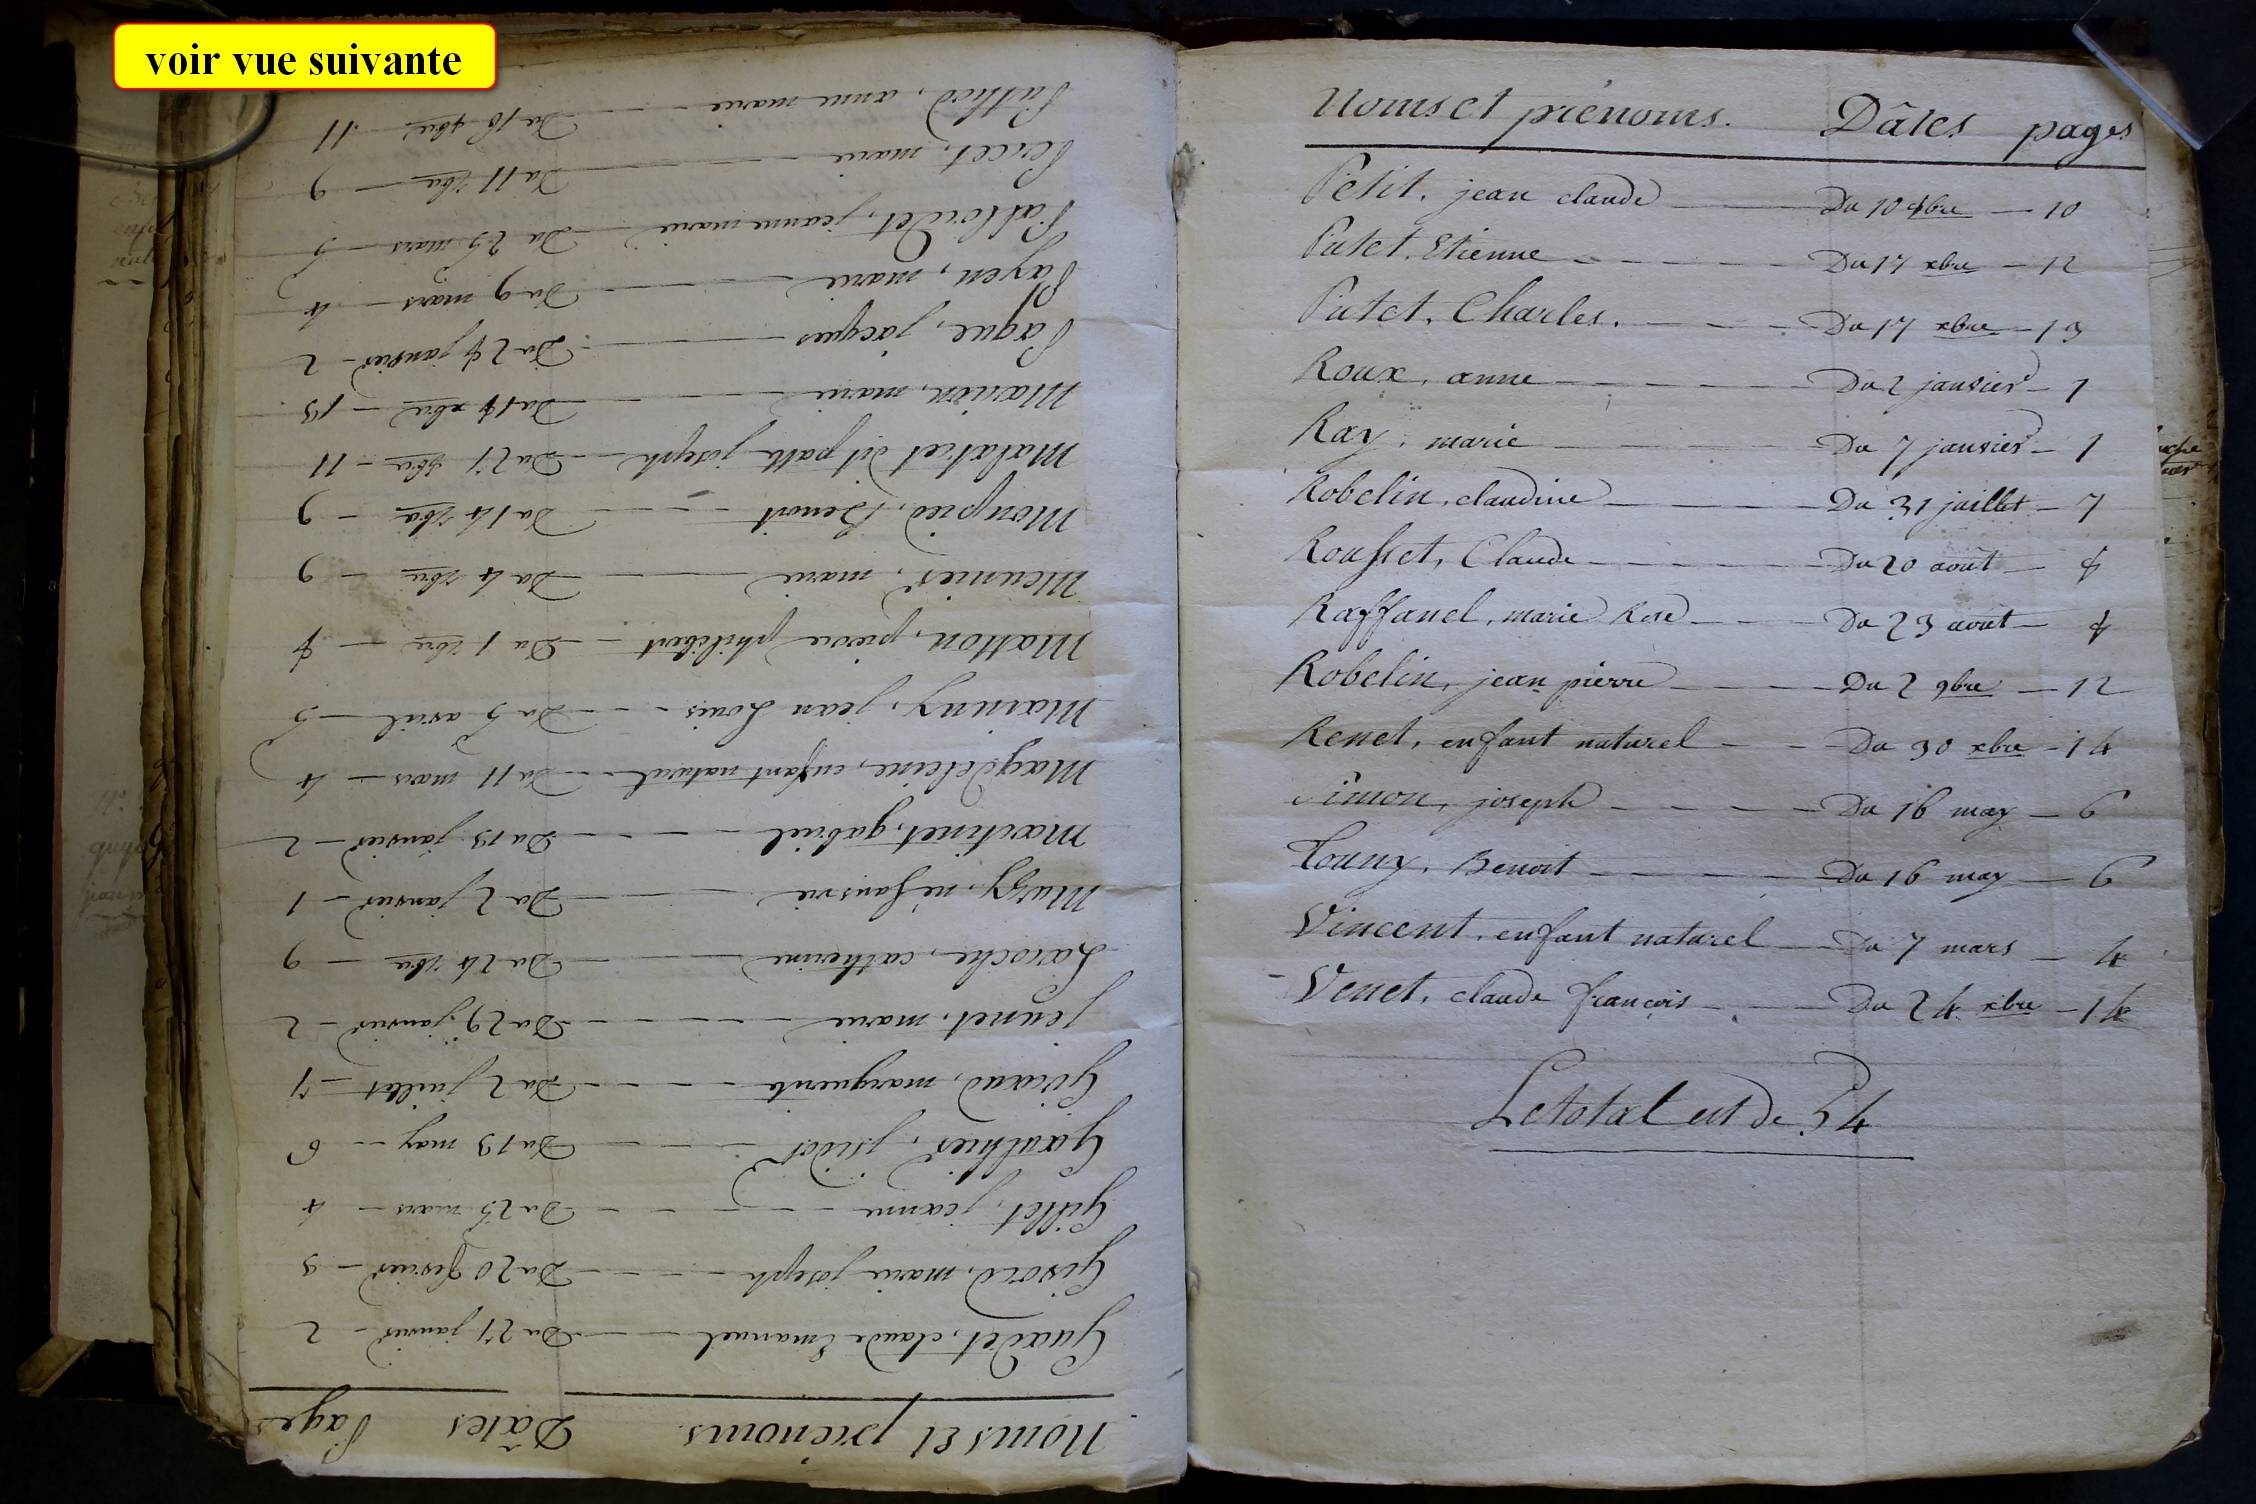 voir vue suivante
Noms et prénoms. Dâtes Pages
Guardet, claude Emanuel Du 27 janvier 2
Girard, marie joseph Du 20 fevrier 3
Gillet, jeanne Du 25 mars 4
Gauthier, Du 13 may 6
Giraud, marguerite Du 2 juillet 7
Jeunet, marie Du 29 janvier 2
Laroche, catherine Du 24 7bre 9
Du 2 janvier 1
Martinet, gabriel Du 13 janvier 2
Magdeleine, enfant naturel Du 11 mars 4
Mainny, jean Louis Du 5 avril 5
Matton, pierre philibert Du 1 7bre 8
Meunier, marie Du 4 7bre 9
Monpied, Benoit Du 14 7bre 9
dit patte joseph Du 27 8bre 11
marie Du 18 xbre 13
Paque, jacques Du 28 janvier 2
Payen, marie Du 9 mars 4
jeanne marie Du 25 mars 5
Percet, marie Du 11 7bre 9
Puthod, anne marie Du 16 8bre 11
Noms et prénoms. Dâtes pages
Petit, jean claude Du 10 8bre 10
Putet, Etienne Du 17 xbre 12
Putet, Charles. Du 17 xbre 13
Roux, anne Du 2 janvier 1
Ray, marie Du 7 janvier 1
Robelin, claudine Du 31 juillet 7
Rousset, Claude Du 20 août 8
Raffanel, marie Rose Du 23 août 8
Robelin, jean pierre Du 2 9bre 12
Renet, enfant naturel Du 30 xbre 14
Simon, joseph Du 16 may 6
Touny, Benoit Du 16 may 6
Vincent, enfant naturel Du 7 mars 4
Venet, claude françois Du 24 xbre 14
Le total est de 54